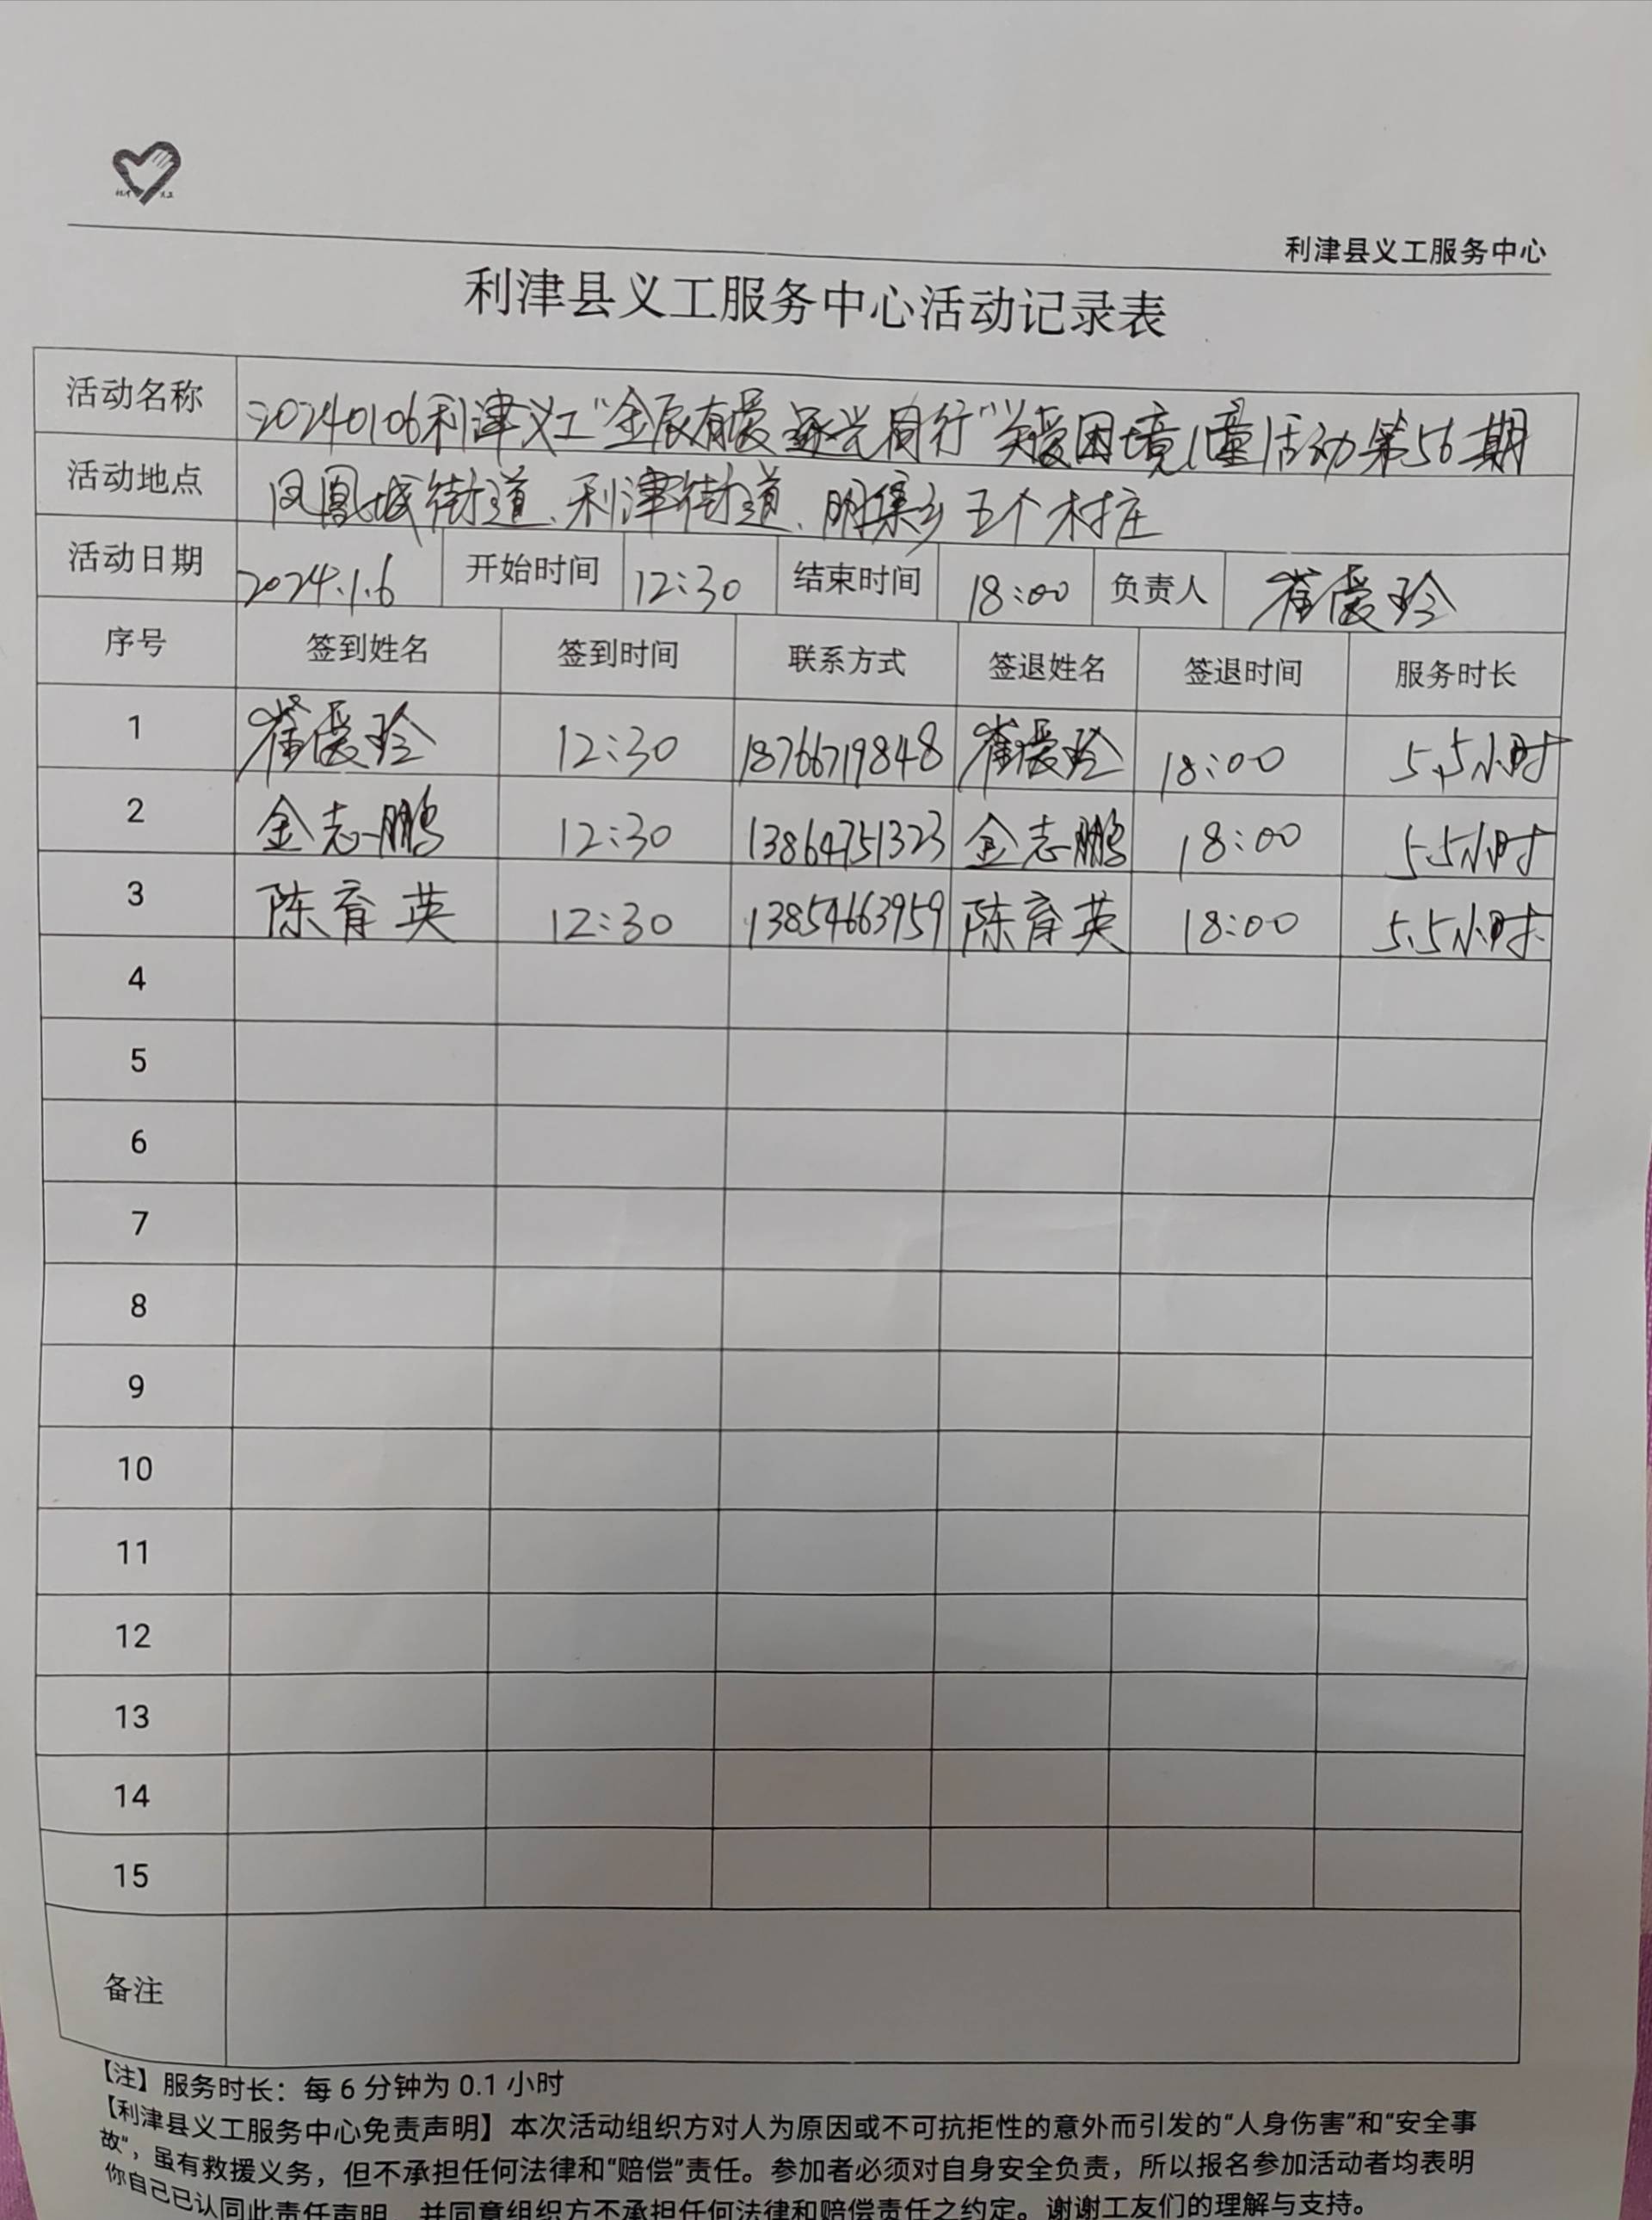 利津义工
利津县义工服务中心
利津县义工服务中心活动记录表
活动名称 20240106利津义工"金辰有爱 逐光同行"关爱困境儿童活动第56期
活动地点 凤凰城街道、利津街道、明集乡五个村庄
活动日期 2024.1.6 开始时间 12:30 结束时间 18:00 负责人 崔爱玲
序号 签到姓名 签到时间 联系方式 签退姓名 签退时间 服务时长
1 崔爱玲 12:30 18766719848 崔爱玲 18:00 5.5小时
2 金志鹏 12:30 13864751323 金志鹏 18:00 5.5小时
3 陈育英 12:30 13854663959 陈育英 18:00 5.5小时
4
5
6
7
8
9
10
11
12
13
14
15
备注
【注】服务时长：每 6 分钟为 0.1 小时
【利津县义工服务中心免责声明】本次活动组织方对人为原因或不可抗拒性的意外而引发的“人身伤害”和“安全事
故”，虽有救援义务，但不承担任何法律和“赔偿”责任。参加者必须对自身安全负责，所以报名参加活动者均表明
你自己已认同此责任声明，并同意组织方不承担任何法律和赔偿责任之约定。谢谢工友们的理解与支持。